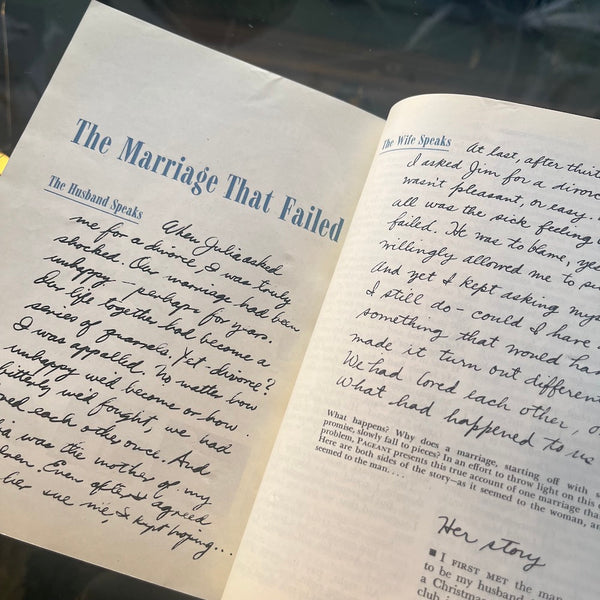 The Marriage That Failed
The Husband Speaks
When Julia asked
me for a divorce, I was truly
shocked. Our marriage had been
unhappy – perhaps for years.
Our life together had become a
series of quarrels. Yet - divorce?
I was appalled. No matter how
unhappy we'd become or how
bitterly we'd fought, we had
each other once. And
was the mother of my
Even after I agreed
her sue me, I kept hoping...
The Wife Speaks
At last, after
I asked Jim for a
wasn't pleasant, or easy.
all was the sick feeling
failed. It was to blame,
willingly allowed me to
And yet I kept asking
I still do – could I have
something that would
made it turn out
We had loved each other,
What had happened to us
What happens? Why does a marriage, starting off with
promise, slowly fall to pieces? In an effort to throw light on this
problem, PAGEANT presents this true account of one marriage
Here are both sides of the story—as it seemed to the woman,
seemed to the man. . . .
Her story
■ I FIRST MET the
to be my
a
club